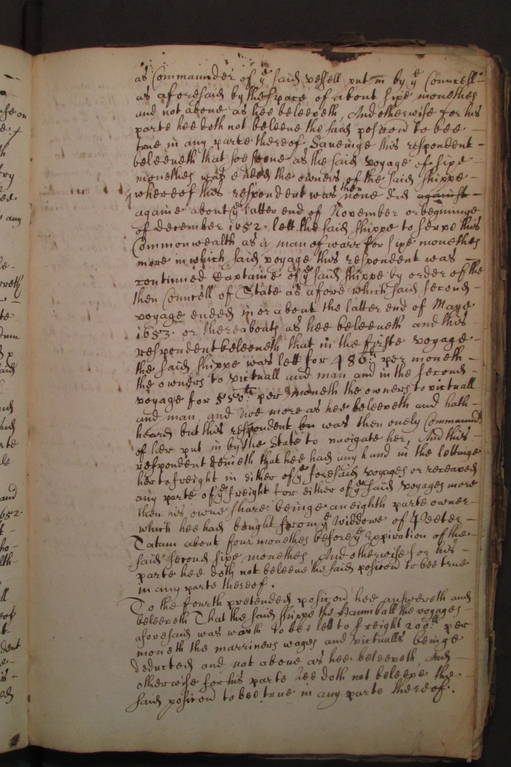 as Commaunder of ye said vessell put in by ye Councell
as aforesaid by the space of about sixe monethes
and not above as hee beleeveth, And otherwise for his
parte hee doth not beleeve the said posicon to bee
true in any parte thereof. Saveinge this respondent
beleeveth that soe soone as the said voyage of sixe
monethes was ended the owners of the said shippe
whereof this respondent was then none did against
againe about ye latter end of November or begininge
of december 1652. lett the said shippe to serve this
Commonwealth as a man of warr for sixe monethes
more in which said voyage this respondent was
continued Captaine of ye said shippe by order of the
then Councell of State as afore which said second
voyage ended in or about the latter end of Maye
1653. or thereabouts as hee beleeveth and this
respondent beleeveth that in the firste voyage
the said shippe was lett for per moneth
the owners to victuall and man and in the second
voyage for per moneth the owners to victuall
and man, and noe more as hee beleeveth and hath
heard but this respondent was then onely Commaunder
of her put in by the State to navigate her, And this
respondent denieth that hee had any hand in the lettinge
her to freight in either of ye foresaid voyages or received
any parte of ye freight for either of ye said voyages more
then his owne share beinge an eighth parte owner
which hee had bought from ye Widdowe of Peter
Tatam about four monethes before ye expiration of the
said second sixe monethes, And otherwise for his
parte hee doth not beleeve the said posicon to bee true
in any parte thereof.
To the fourth pretended posicon hee answereth and
beleeveth That the said shippe the Hanniball the voyages
aforesaid was worth to be lett to freight 200li per
moneth the marriners wages and victualls beinge
deducted and not above as hee beleeveth And
otherwise for his parte hee doth not beleeve the
said posicon to bee true in any parte thereof.